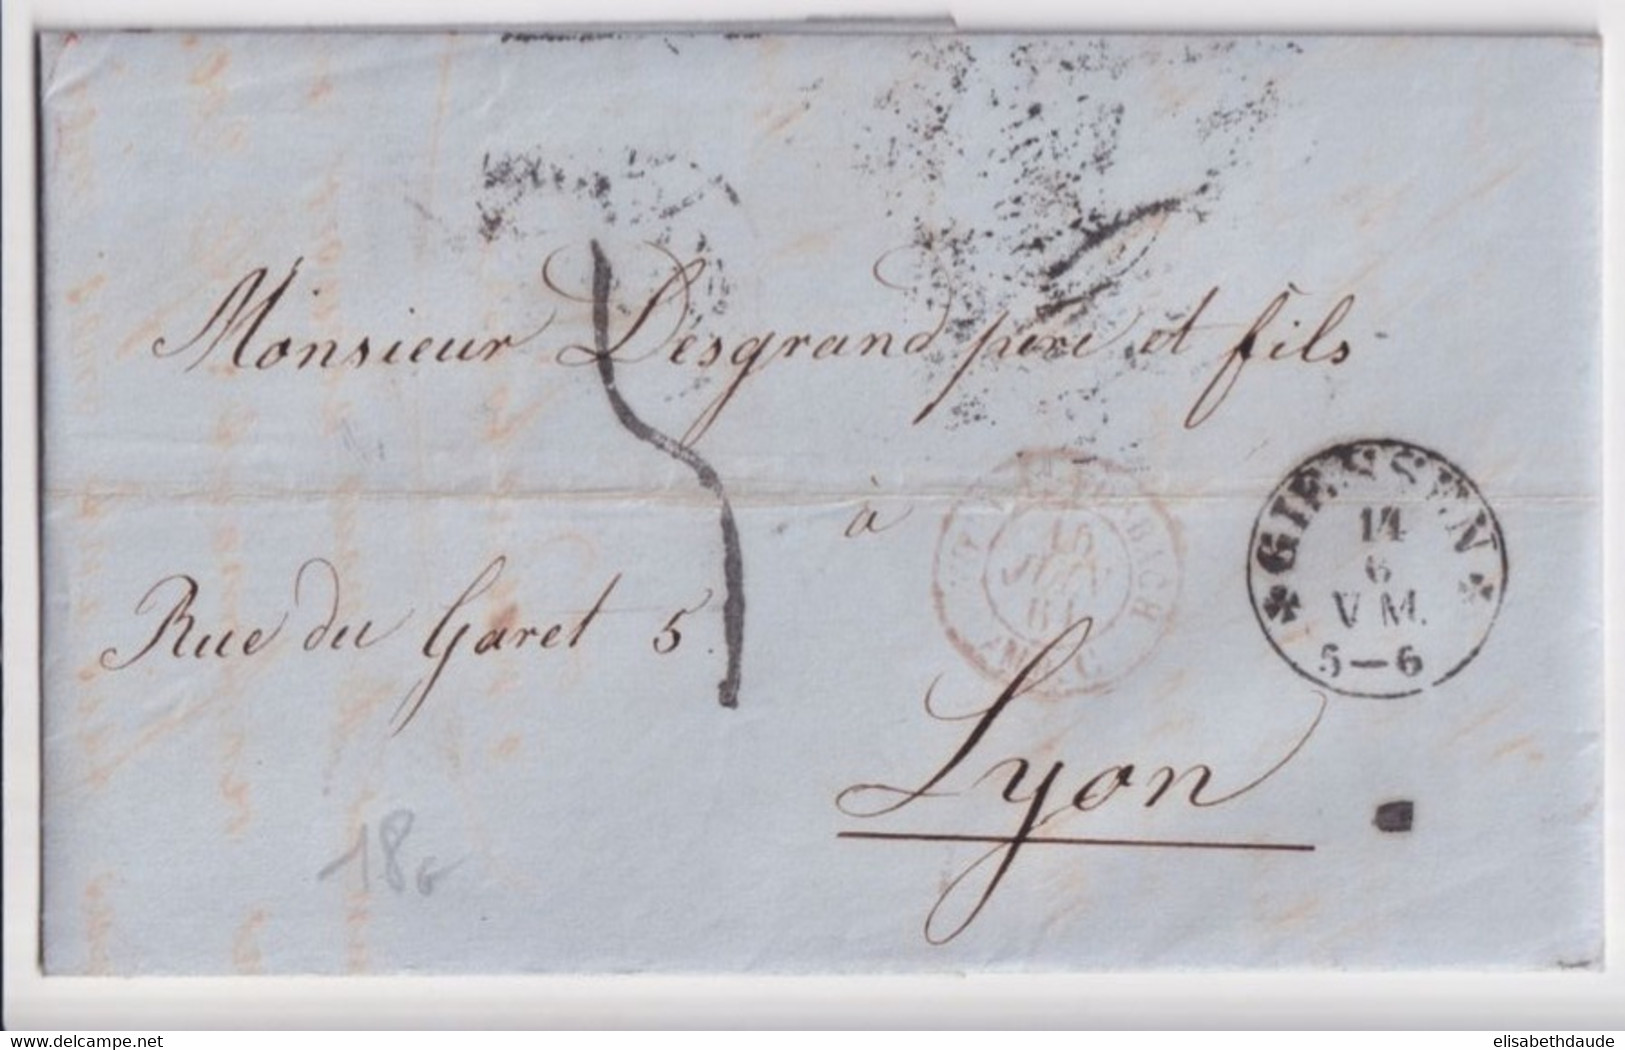 Monsieur Desgrand père et fils
à
Rue du Garet 5.
Lyon
GIESSEN
14
6
V M.
5—6
15
JUIN
61
18 G
delcampe.net
elisabethdaude